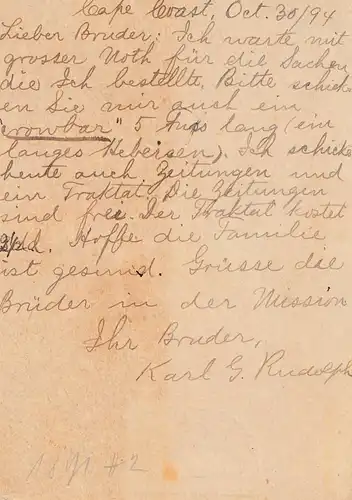 Cape Coast, Oct. 30/94
Lieber Bruder: Ich warte mit
grosser Noth für die Sachen
die Ich bestellte. Bitte schick-
en Sie mir auch ein
"crowbar" 5 fuss lang (ein
langes Hebeisen). Ich schicke
heute auch Zeitungen und
ein Traktat. Die Zeitungen
sind frei. Der Traktat kostet
Hoffe die Familie
ist gesund. Grüsse die
Brüder in der Mission
Ihr Bruder,
Karl G. Rudolph